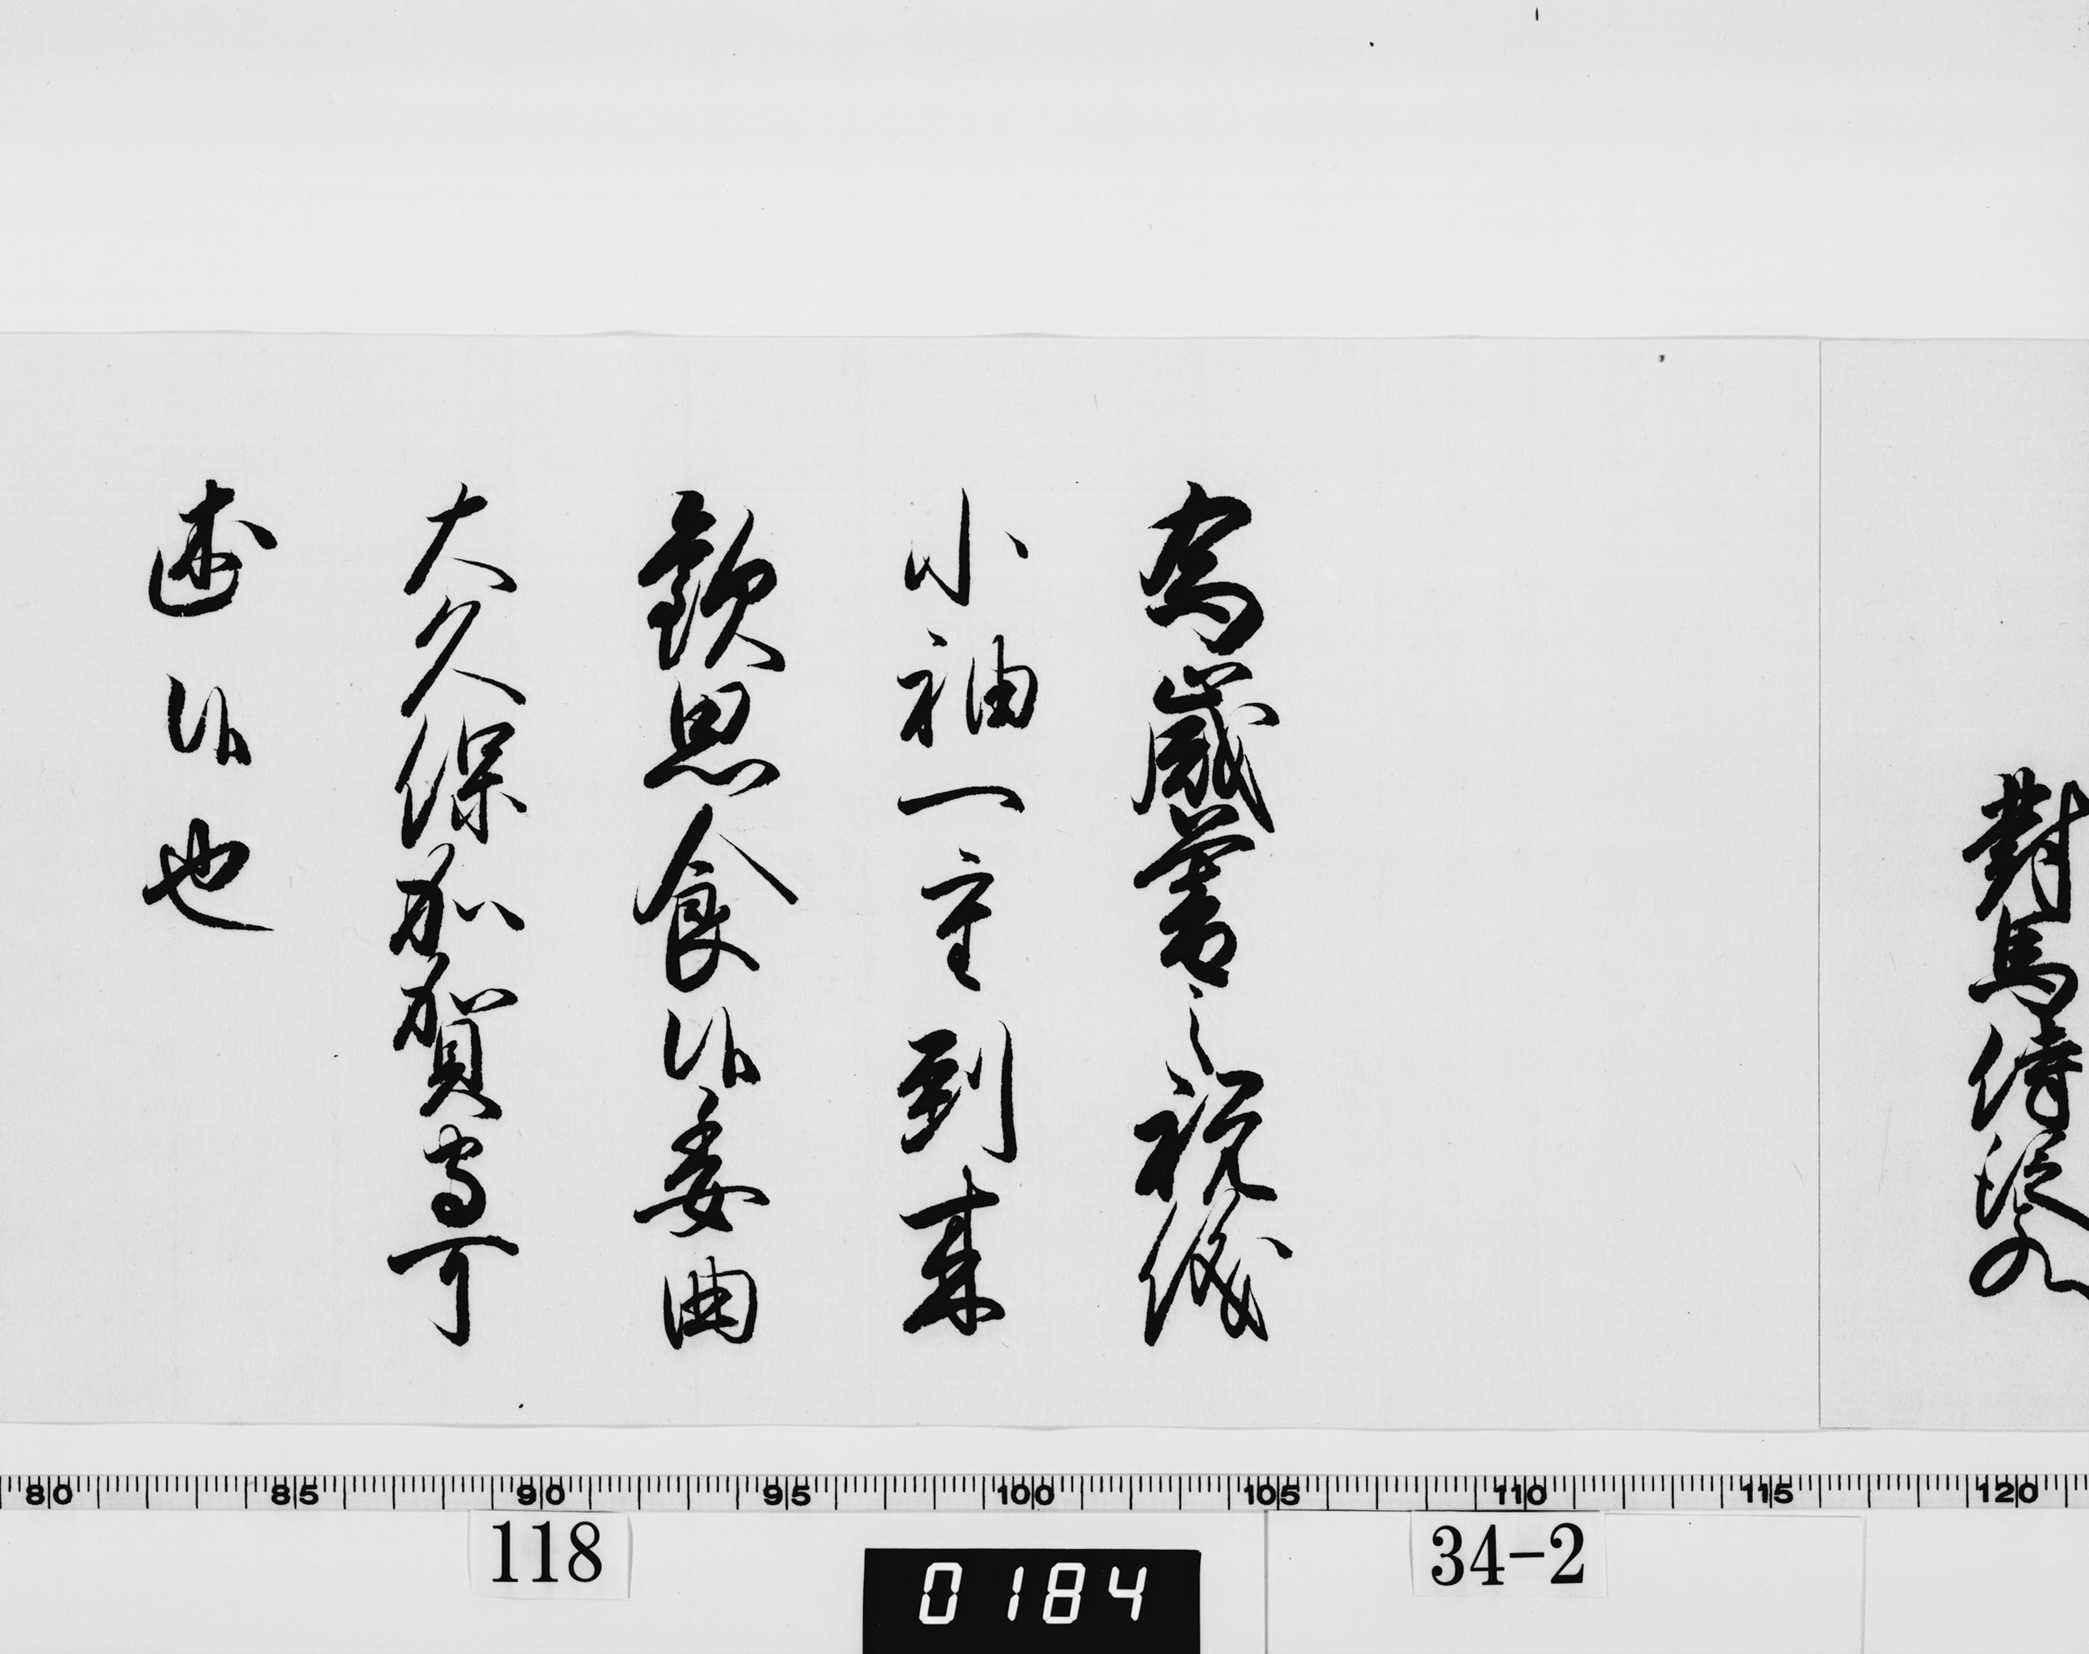 對馬侍従殿
為歳暮之祝儀
小袖一重到来
歓思食候委曲
大久保加賀守可
述候也
80 85 90 95 100 105 110 115 120
118
0184
34-2